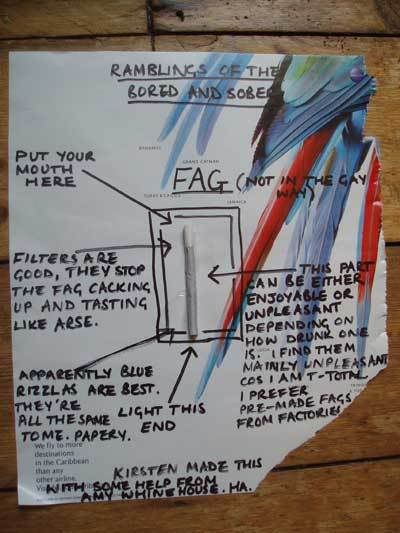 RAMBLINGS OF THE
BORED AND SOBER
PUT YOUR
MOUTH
HERE
GRAND CAYMAN
JAMAICA
FAG (NOT IN THE GAY
WAY)
FILTERS ARE
GOOD, THEY STOP
THE FAG CACKING
UP AND TASTING
LIKE ARSE.
THIS PART
CAN BE EITHER
ENJOYABLE OR
UNPLEASANT
DEPENDING ON
HOW DRUNK ONE
IS. I FIND THEM
MAINLY UNPLEASANT
COS I AM T-TOTAL
I PREFER
PRE-MADE FAGS
FROM FACTORIES
APPARENTLY BLUE
RIZZLAS ARE BEST.
THEY'RE
ALL THE SAME
TO ME. PAPERY.
LIGHT THIS
END
We fly to more
destinations
in the Caribbean
than any
other airline.
KIRSTEN MADE THIS
WITH SOME HELP FROM
AMY WHINEHOUSE. HA.